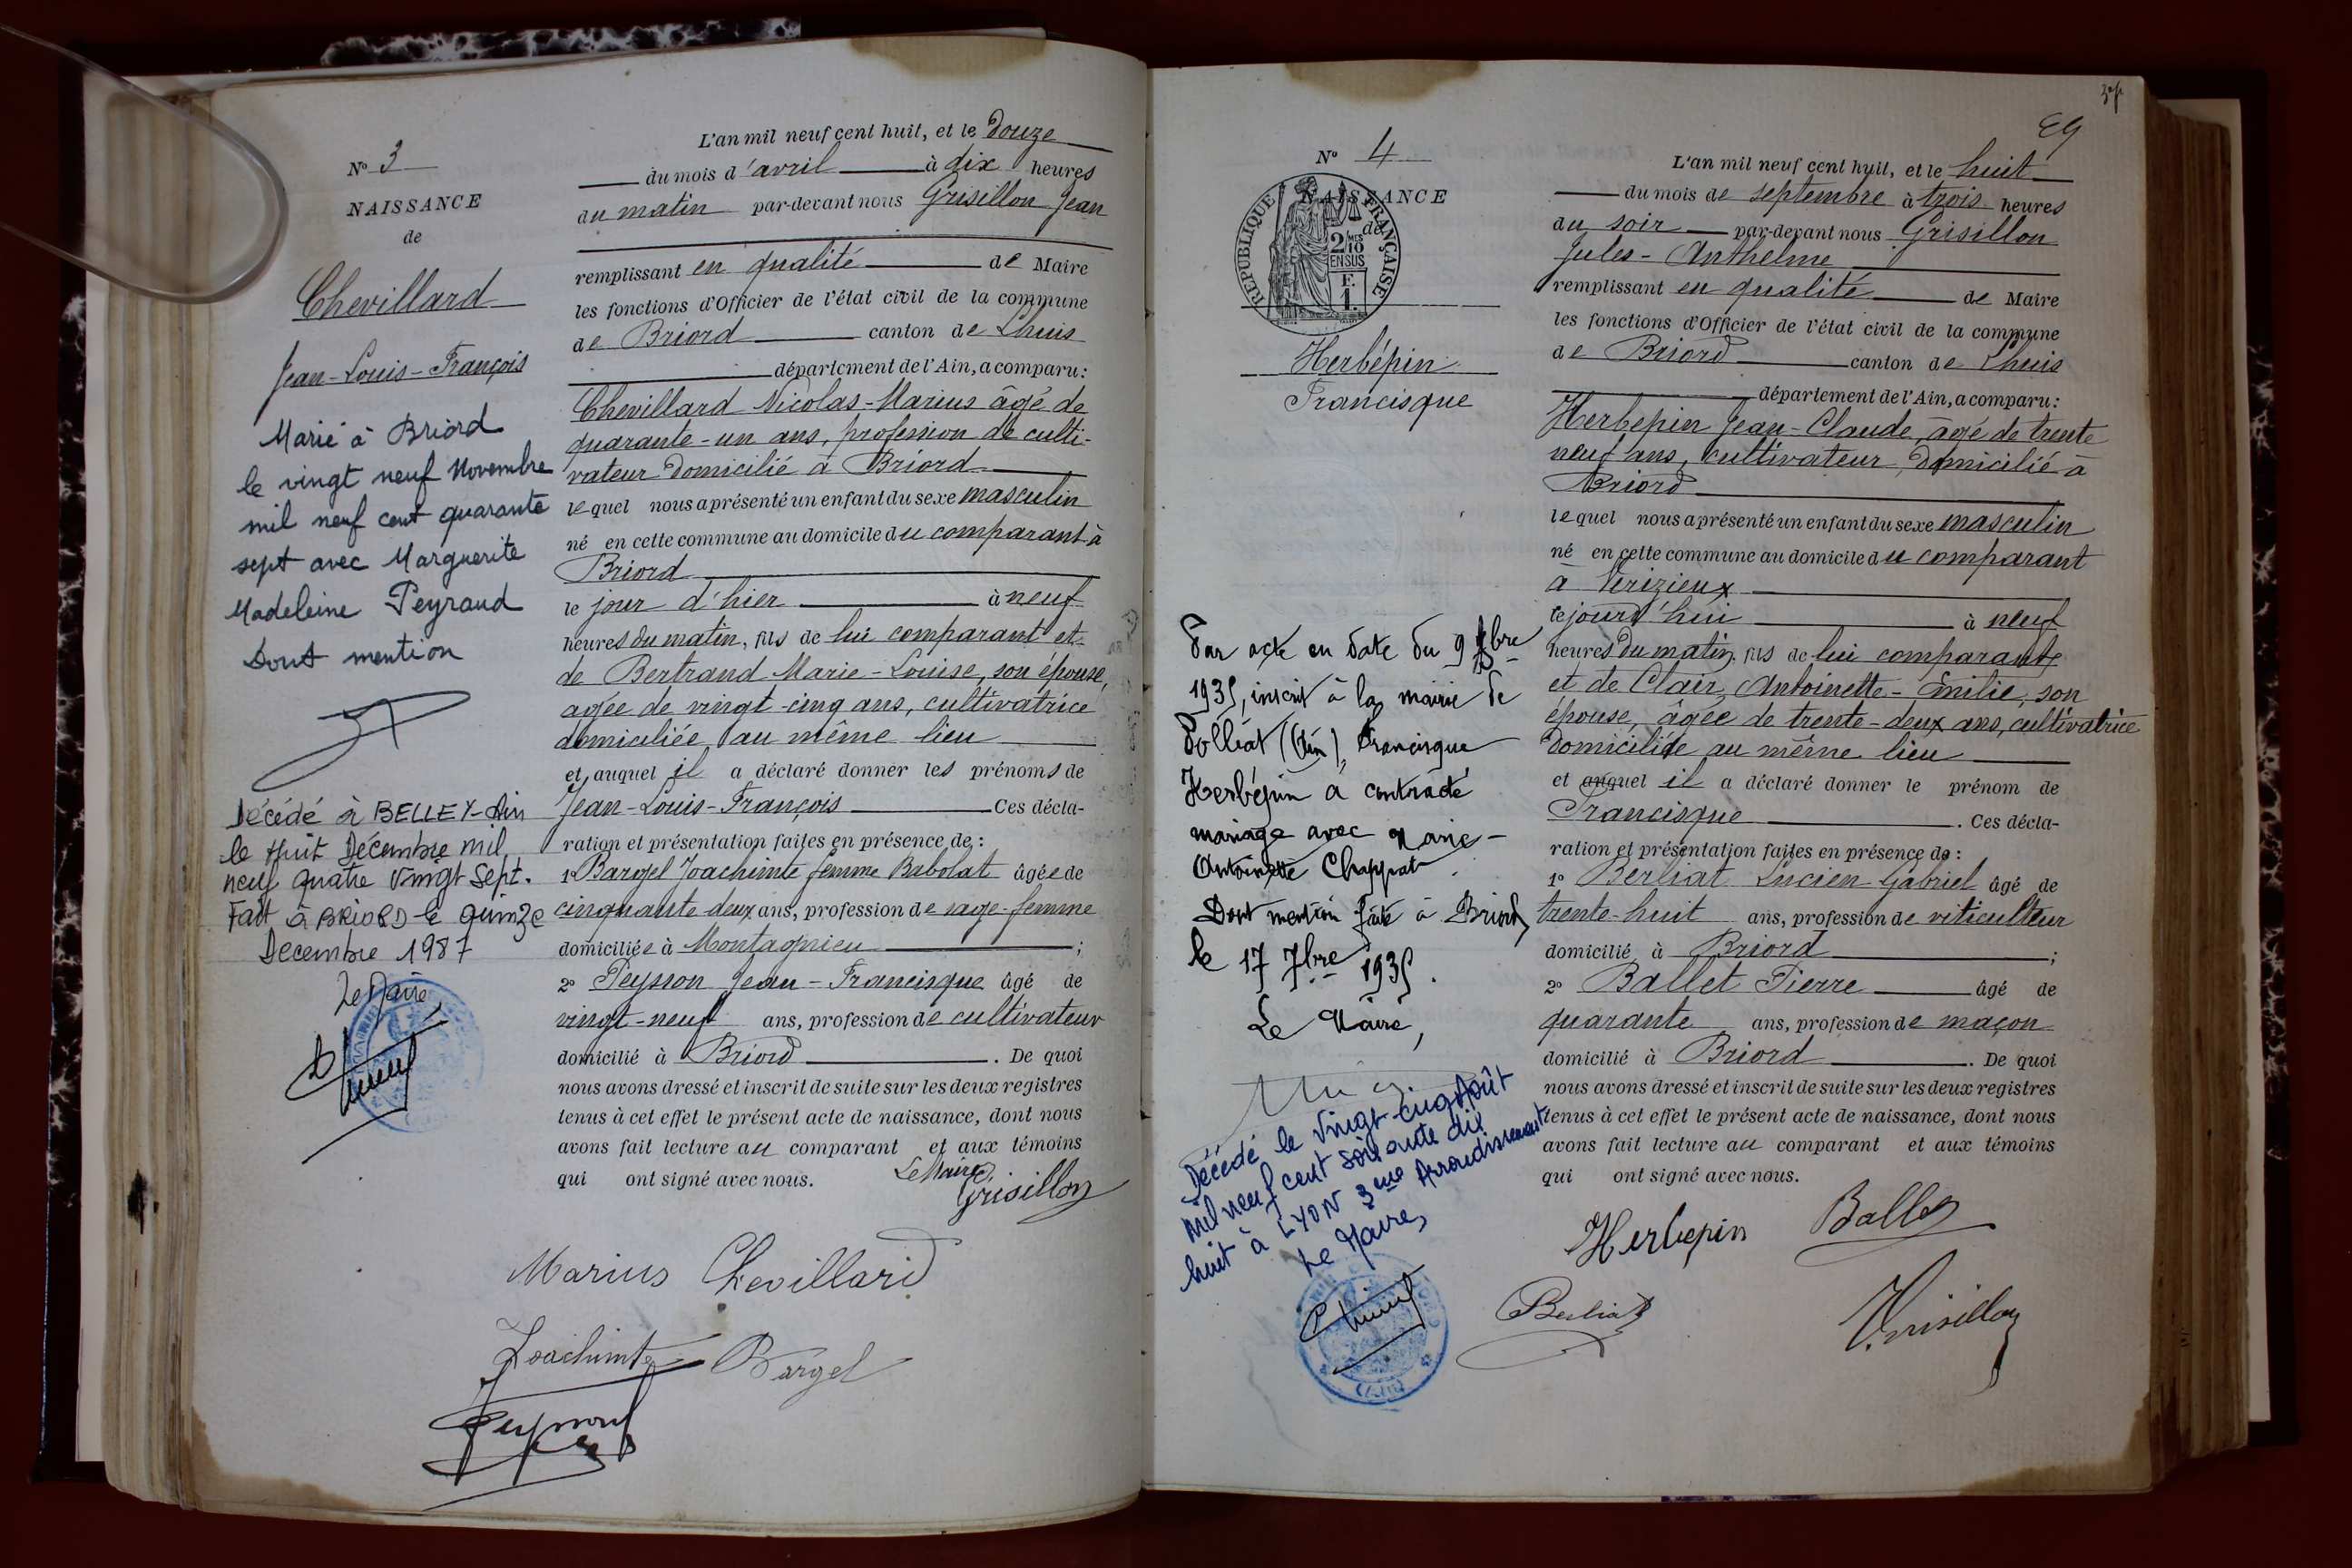 N° 3
NAISSANCE
de
Chevillard
Jean-Louis-François
Marié à Briord
le vingt neuf Novembre
mil neuf cent quarante
sept avec Marguerite
Madeleine Peyraud
Dont mention
Décédé à BELLEY-Ain
le Huit Décembre mil
neuf quatre Vingt Sept.
Fait à BRIORD le quinze
Decembre 1987
Le Maire,
L'an mil neuf cent huit, et le douze
du mois d'avril à dix heures
du matin par-devant nous Grisillon Jean
remplissant en qualité de Maire
les fonctions d'Officier de l'état civil de la commune
de Briord canton de Lhuis
département de l'Ain, a comparu:
Chevillard Nicolas-Marius âgé de
quarante-un ans, profession de culti-
vateur domicilié à Briord
lequel nous a présenté un enfant du sexe masculin
né en cette commune au domicile du comparant à
Briord
le jour d'hier à neuf
heures du matin, fils de lui comparant et
de Bertrand Marie-Louise, son épouse,
agée de vingt-cinq ans, cultivatrice
domiciliée au même lieu
et auquel il a déclaré donner les prénoms de
Jean-Louis-François Ces décla-
ration et présentation faites en présence de:
1° Bargel Joachimte femme Babolat âgée de
cinquante-deux ans, profession de sage-femme
domiciliée à Montagnieu ;
2° Peysson Jean-Francisque âgé de
vingt-neuf ans, profession de cultivateur
domicilié à Briord. De quoi
nous avons dressé et inscrit de suite sur les deux registres
tenus à cet effet le présent acte de naissance, dont nous
avons fait lecture au comparant et aux témoins
qui ont signé avec nous.
Le Maire
Grisillon
Marius Chevillard
Joachimte Bargel
Peysson
39
N° 4
NAISSANCE
de
RÉPUBLIQUE FRANÇAISE
2/10 MES
EN SUS
F.
1.
Herbépin
Francisque
Par acte en date du 9 7bre
1935, inscrit à la mairie de
Polliat (Ain), Francisque
Herbépin a contracté
mariage avec Marie-
Antoinette Chappat
Dont mention faite à Briord
le 17 7bre 1935.
Le Maire,
Décédé le Vingt-cinq Août
mil neuf cent soixante dix
huit à LYON 3ème Arrondissement
Le Maire,
(AIN)
L'an mil neuf cent huit, et le huit
du mois de septembre à trois heures
du soir par-devant nous Grisillon
Jules-Anthelme
remplissant en qualité de Maire
les fonctions d'Officier de l'état civil de la commune
de Briord canton de Lhuis
département de l'Ain, a comparu:
Herbepin Jean-Claude, âgé de trente
neuf ans, cultivateur, domicilié à
Briord
lequel nous a présenté un enfant du sexe masculin
né en cette commune au domicile du comparant
à Vérizieux
cejourd'hui à neuf
heures du matin, fils de lui comparant
et de Clair, Antoinette-Emilie, son
épouse, âgée de trente-deux ans, cultivatrice
domiciliée au même lieu
et auquel il a déclaré donner le prénom de
Francisque. Ces décla-
ration et présentation faites en présence de:
1° Berliat Lucien-Gabriel âgé de
trente-huit ans, profession de viticulteur
domicilié à Briord ;
2° Ballet Pierre âgé de
quarante ans, profession de maçon
domicilié à Briord. De quoi
nous avons dressé et inscrit de suite sur les deux registres
tenus à cet effet le présent acte de naissance, dont nous
avons fait lecture au comparant et aux témoins
qui ont signé avec nous.
Herbepin Ballet
Berliat Grisillon